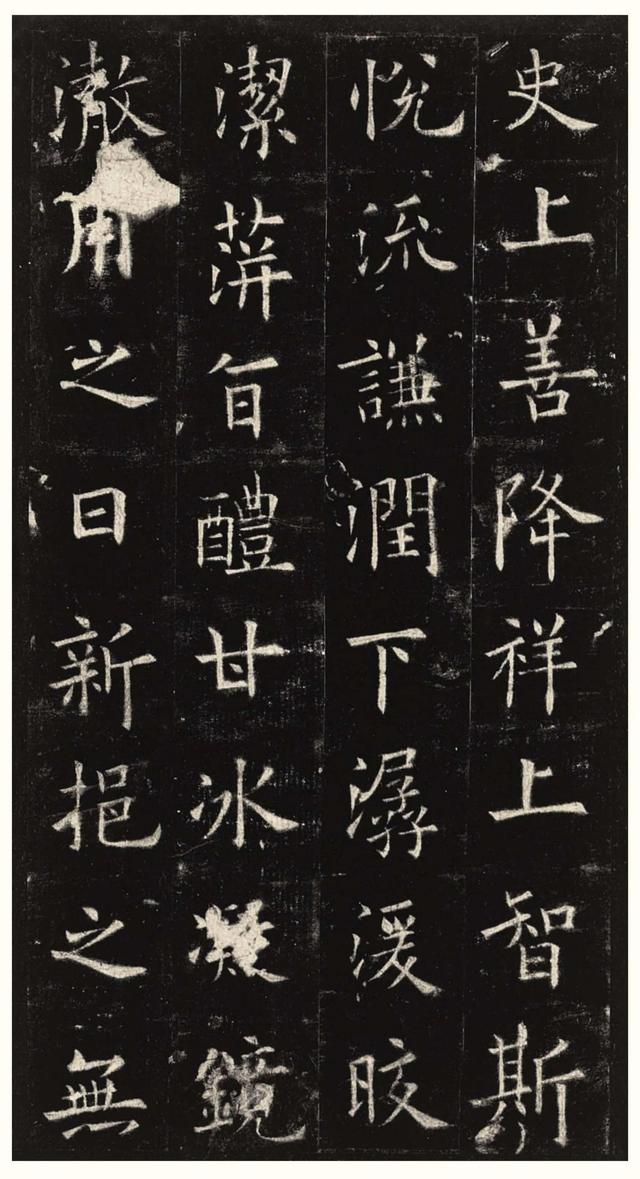 史上善降祥上智斯
悅流謙潤下潺湲皎
潔蓱旨醴甘冰凝鏡
澈用之日新挹之無